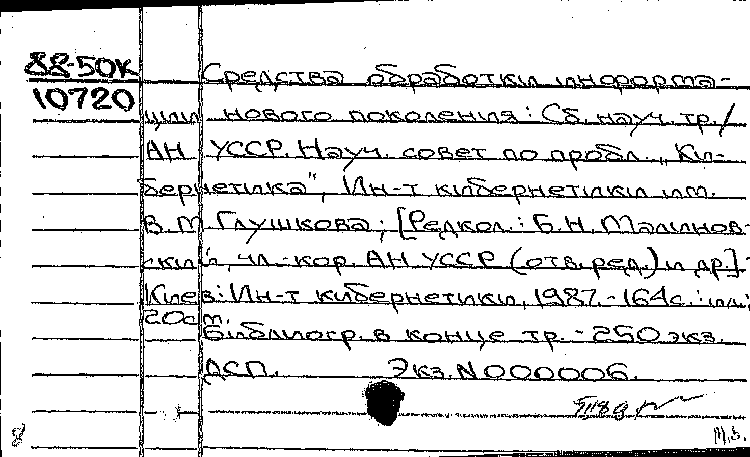 88-50К
10720
Средства обработки информа-
ции нового поколения: Сб. науч. тр./
АН УССР. Науч. совет по пробл. „Ки-
бернетика", Ин-т кибернетики им.
В.М. Глушкова; [Редкол.: Б.Н. Малинов-
ский, чл.-кор. АН УССР (отв. ред.) и др.]-
Киев: Ин-т кибернетики, 1987.-164с.: ил.;
20см.
Библиогр. в конце тр. - 250 экз.
ДСП. Экз. N000006.
8